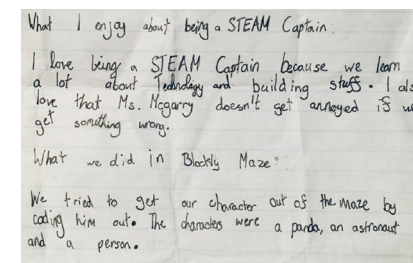 What I enjoy about being a STEAM Captain:
I love being a STEAM Captain because we learn
a lot about Technology and building stuff. I als
love that Ms. Mcgarry doesn't get annoyed if w
get something wrong.
What we did in Blockly Maze:
We tried to get our character out of the maze by
coding him out. The characters were a panda, an astronaut
and a person.